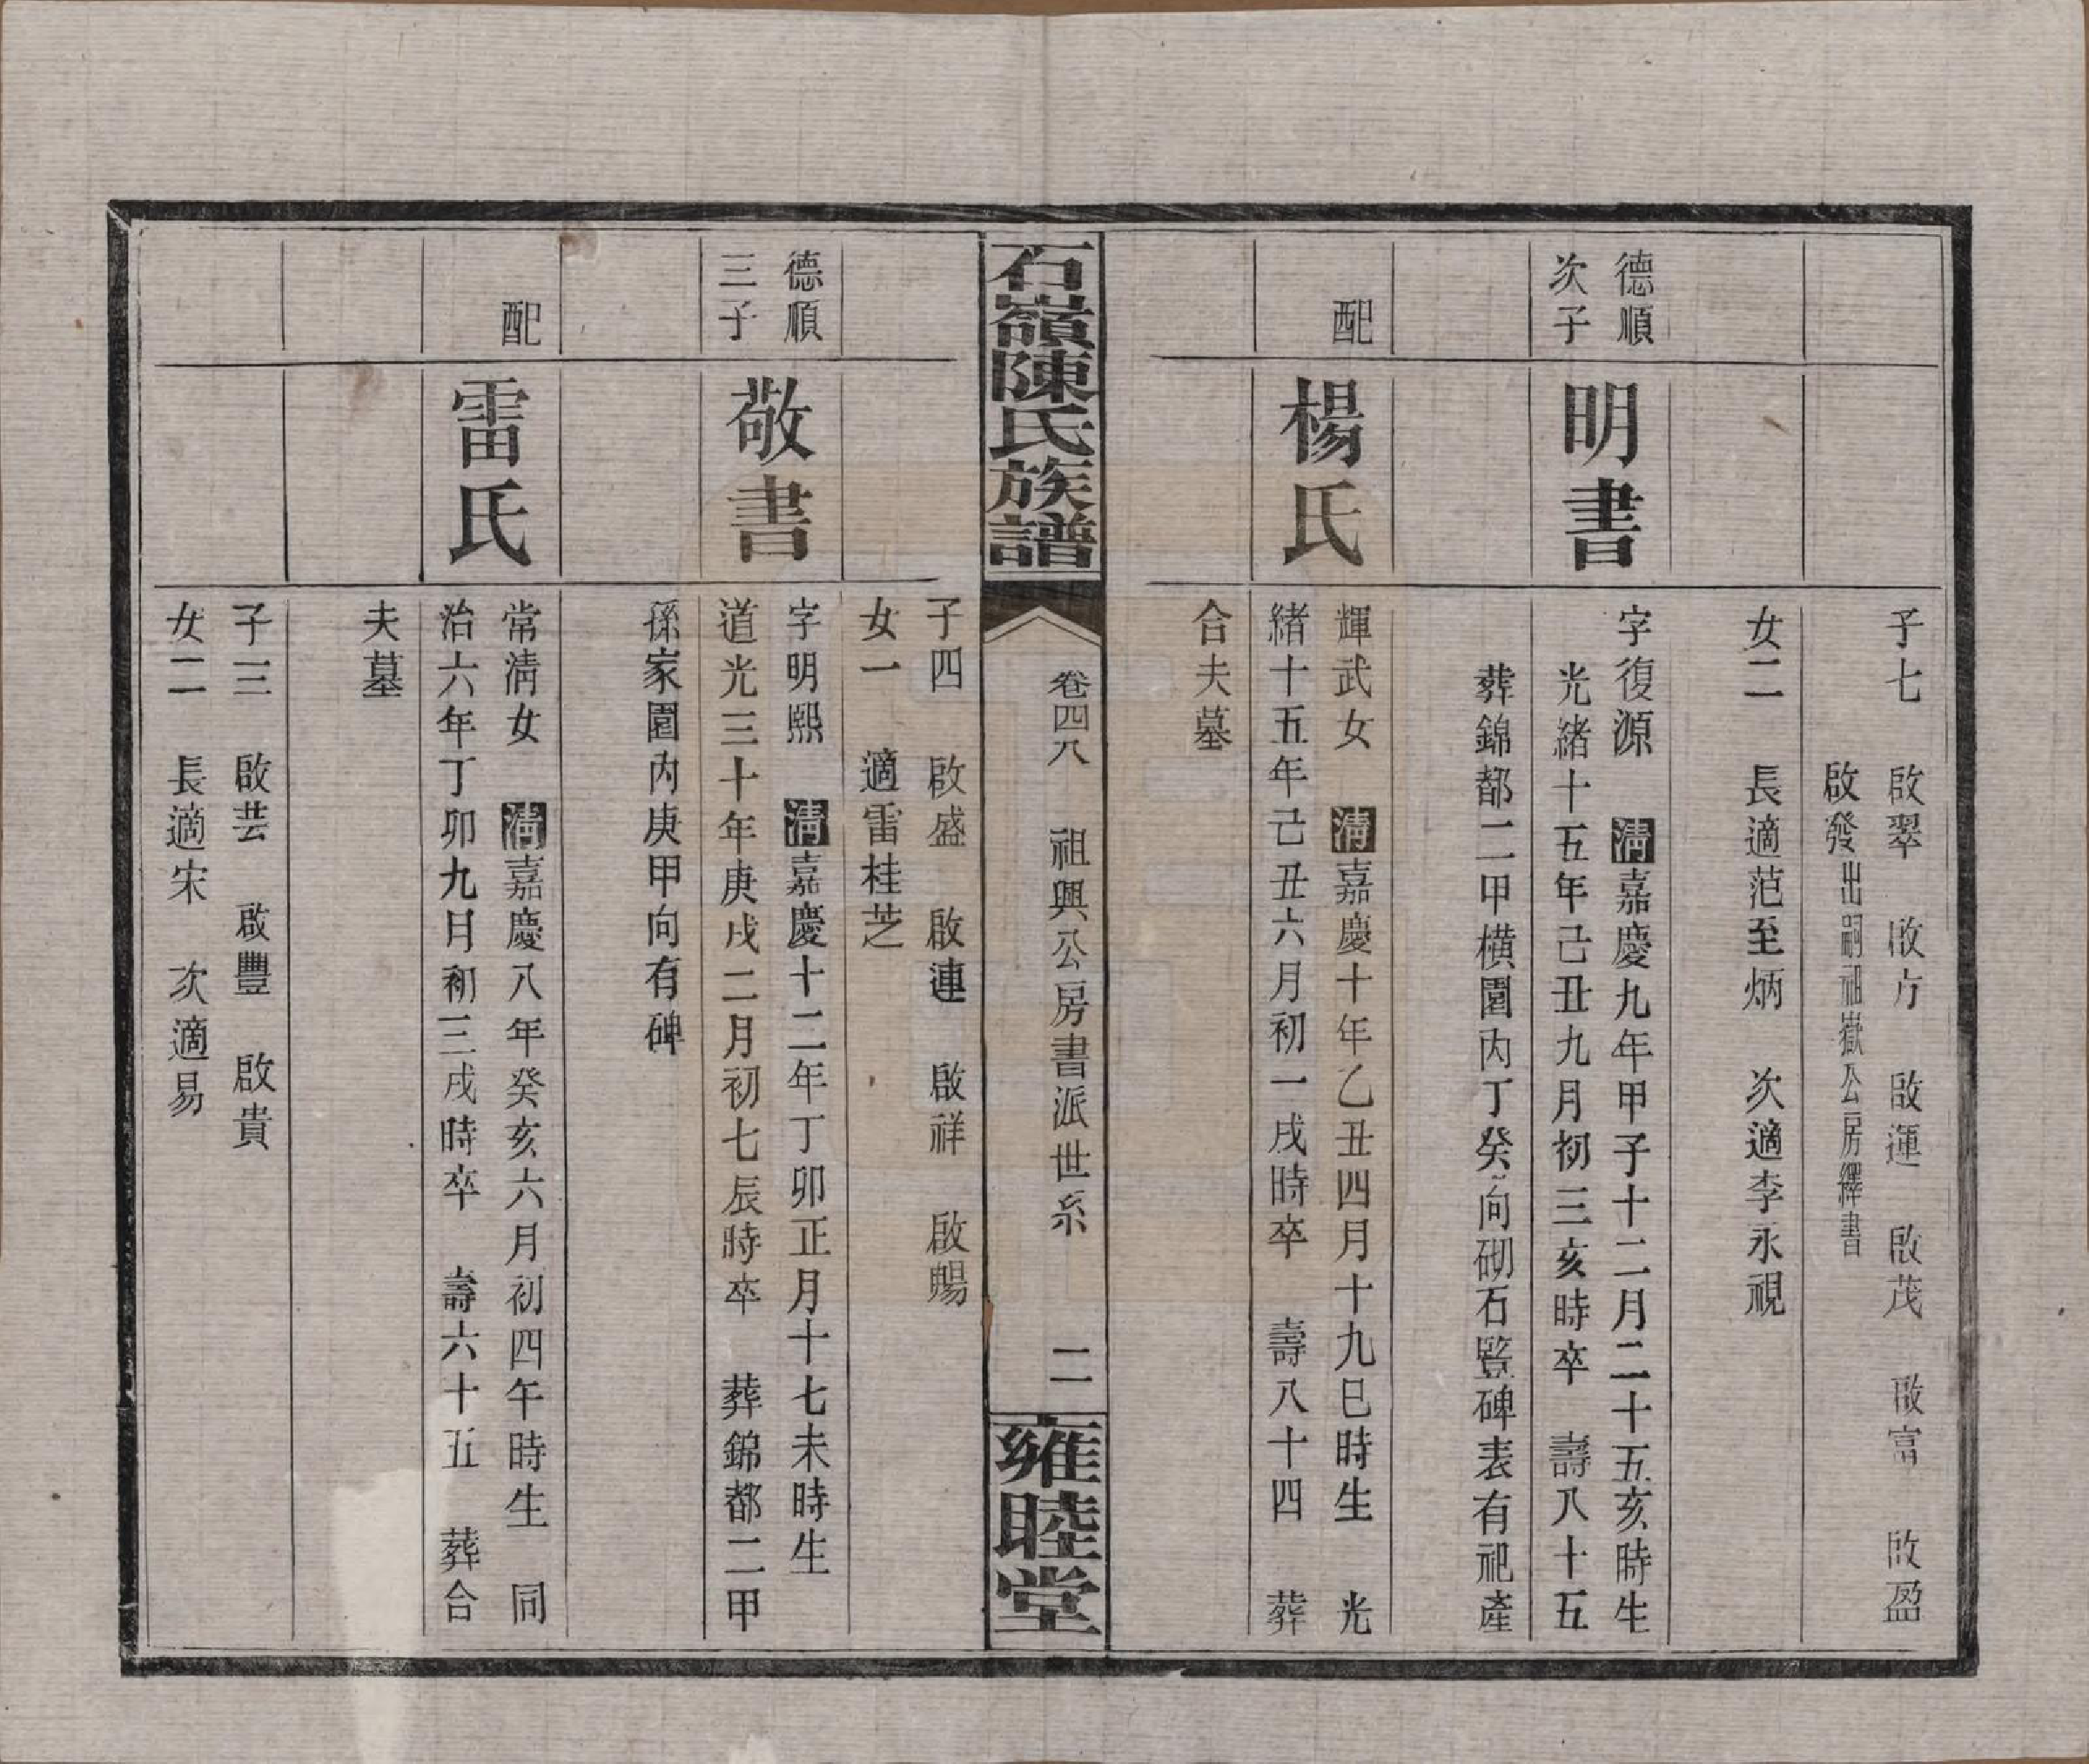 子七　啟翠　啟方　啟運　啟茂　啟富　啟盈
啟發出嗣祖嶽公房繹書
女二　長適范至炳　次適李永視
德順
次子
明書
字復源　清嘉慶九年甲子十二月二十五亥時生
光緒十五年己丑九月初三亥時卒　壽八十五
葬錦都二甲橫園內丁癸向砌石豎碑表有祀產
配
楊氏
輝武女　清嘉慶十年乙丑四月十九巳時生　光
緒十五年己丑六月初一戌時卒　壽八十四　葬
合夫墓
石嶺陳氏族譜
卷四八　祖興公房書派世系　二
雍睦堂
子四　啟盛　啟連　啟祥　啟賜
女一　適雷桂芝
德順
三子
敬書
字明熙　清嘉慶十二年丁卯正月十七未時生
道光三十年庚戌二月初七辰時卒　葬錦都二甲
孫家園內庚甲向有碑
配
雷氏
常清女　清嘉慶八年癸亥六月初四午時生　同
治六年丁卯九月初三戌時卒　壽六十五　葬合
夫墓
子三　啟芸　啟豐　啟貴
女二　長適宋　次適易